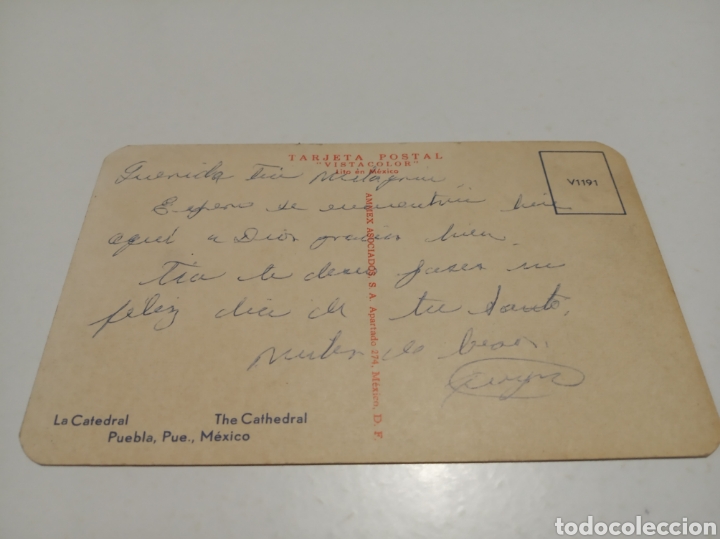 TARJETA POSTAL
"VISTACOLOR"
Lito en México
V1191
AMMEX ASOCIADOS, S. A. Apartado 274, México, D. F.
Querida Tia
Espero se encuentren bien
aquí a Dios gracias bien
Tia le deseo pases un
feliz dia de tu santo.
besos.
La Catedral The Cathedral
Puebla, Pue., México
todocoleccion